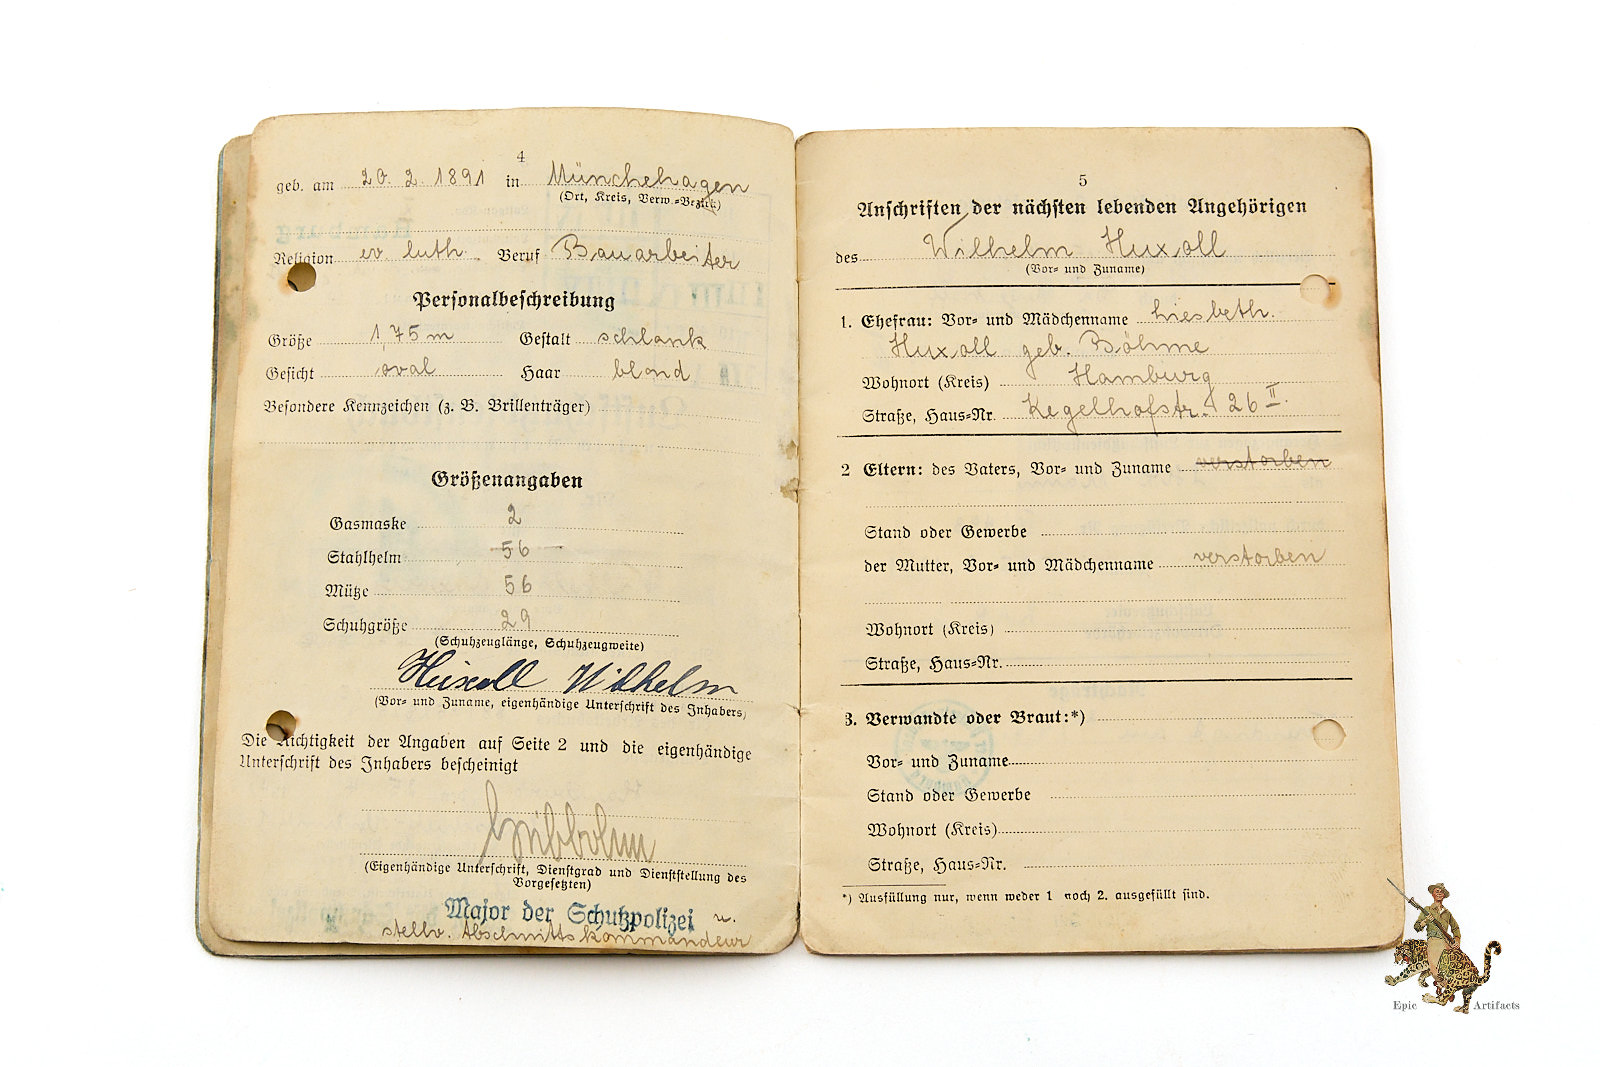 4
geb. am 20. 2. 1891 in Münchehagen
(Ort, Kreis, Verw.=Bezirk)
Religion ev. luth. Beruf Bauarbeiter
Personalbeschreibung
Größe 1,75 m Gestalt schlank
Gesicht oval Haar blond
Besondere Kennzeichen (z. B. Brillenträger)
Größenangaben
Gasmaske 2
Stahlhelm 56
Mütze 56
Schuhgröße 29
(Schuhzeuglänge, Schuhzeugweite)
Huxoll Wilhelm
(Vor= und Zuname, eigenhändige Unterschrift des Inhabers)
Die Richtigkeit der Angaben auf Seite 2 und die eigenhändige
Unterschrift des Inhabers bescheinigt
(Eigenhändige Unterschrift, Dienstgrad und Dienststellung des
Vorgesetzten)
Major der Schutzpolizei u.
stellv. Abschnittskommandeur
5
Anschriften der nächsten lebenden Angehörigen
des Wilhelm Huxoll
(Vor= und Zuname)
1. Ehefrau: Vor= und Mädchenname Liesbeth.
Huxoll geb. Böhme
Wohnort (Kreis) Hamburg
Straße, Haus=Nr. Kegelhofstr. 26 II.
2 Eltern: des Vaters, Vor= und Zuname verstorben
Stand oder Gewerbe
der Mutter, Vor= und Mädchenname verstorben
Wohnort (Kreis)
Straße, Haus=Nr.
3. Verwandte oder Braut:*)
Vor= und Zuname
Stand oder Gewerbe
Wohnort (Kreis)
Straße, Haus=Nr.
*) Ausfüllung nur, wenn weder 1 noch 2. ausgefüllt sind.
Epic Artifacts